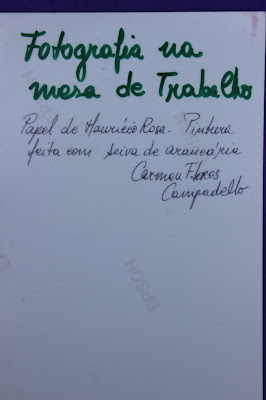 Fotografia na
mesa de Trabalho
Papel de Maurício Rosa. Pintura
feita com seiva de araucária
Carmen Flores
Campadello
EPSON